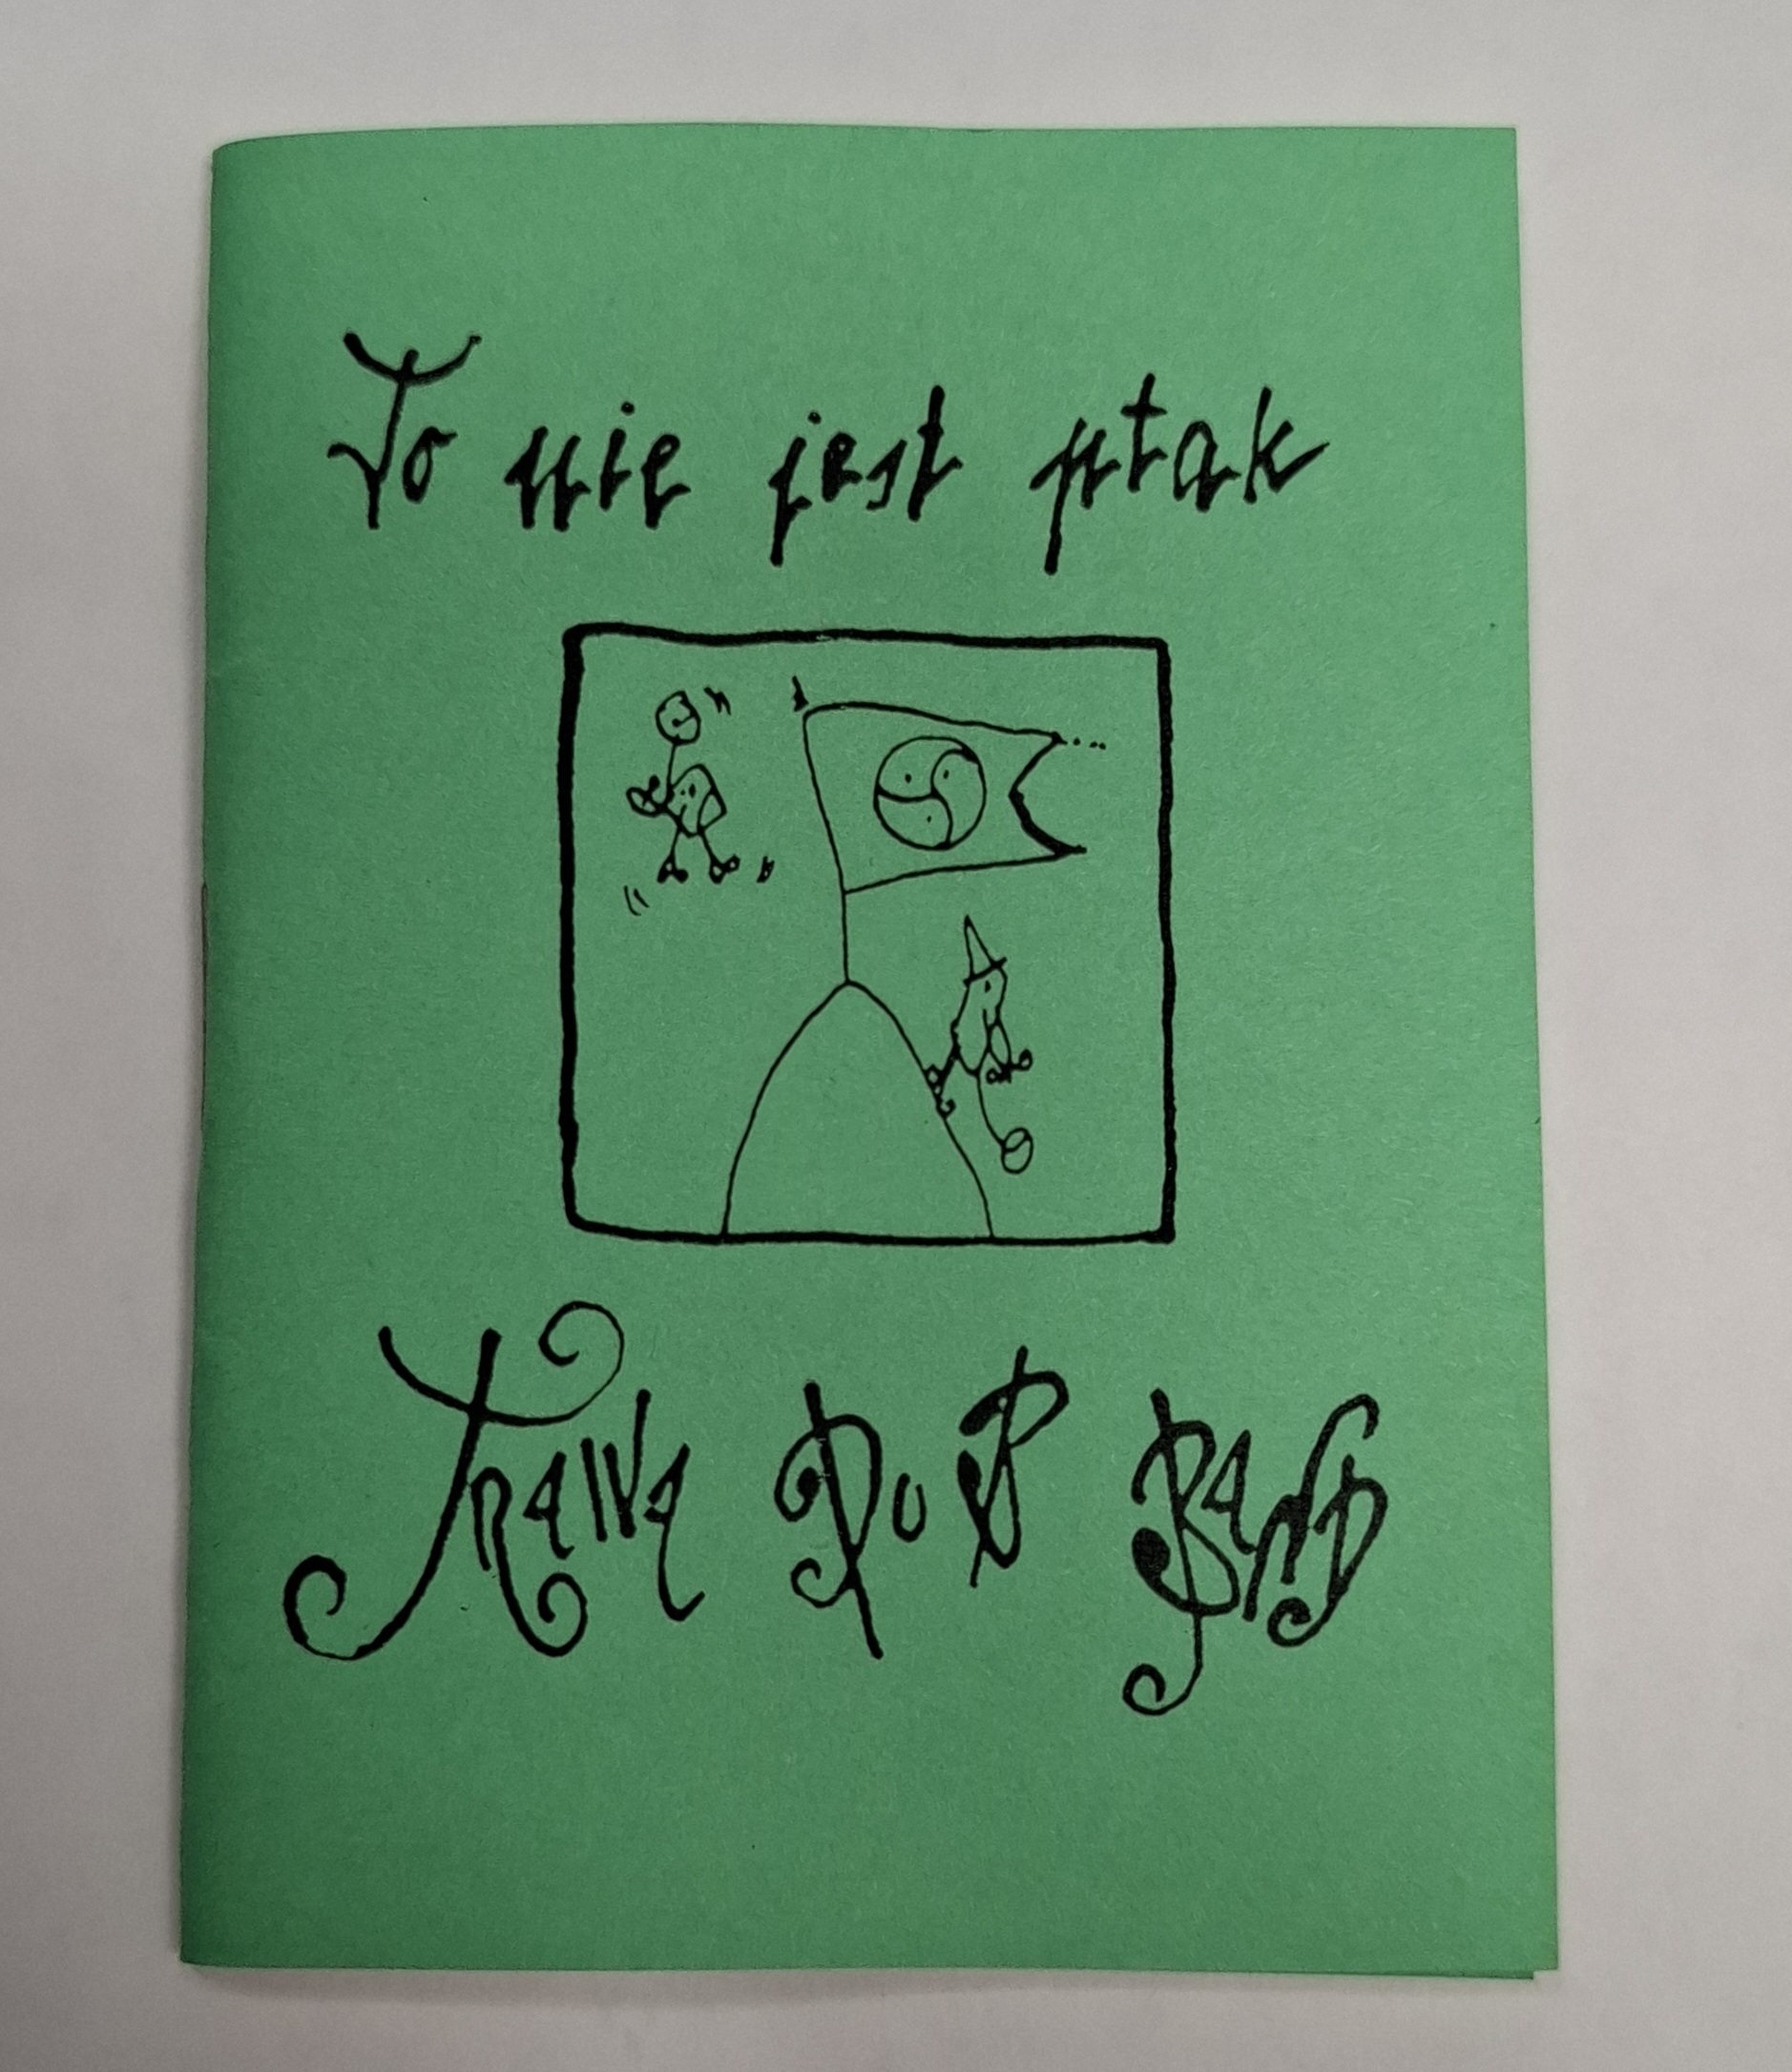 To nie jest ptak
Trawa Dub Band